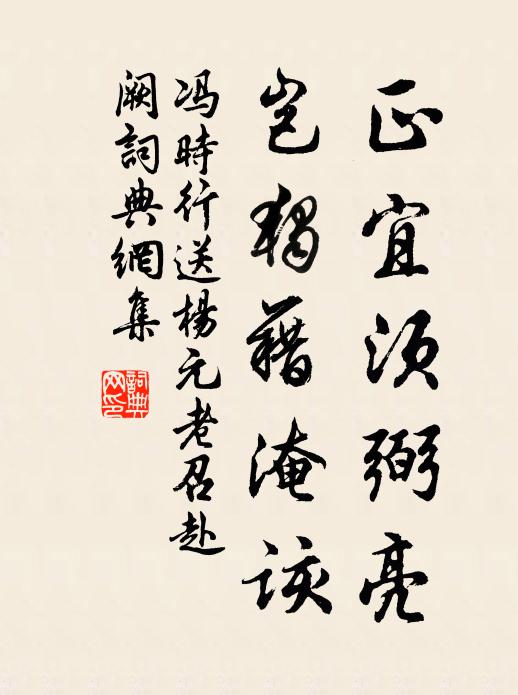 正宜須弼亮
豈獨藉淹該
冯時行送楊元老召赴
闕詞典網集
詞典網印